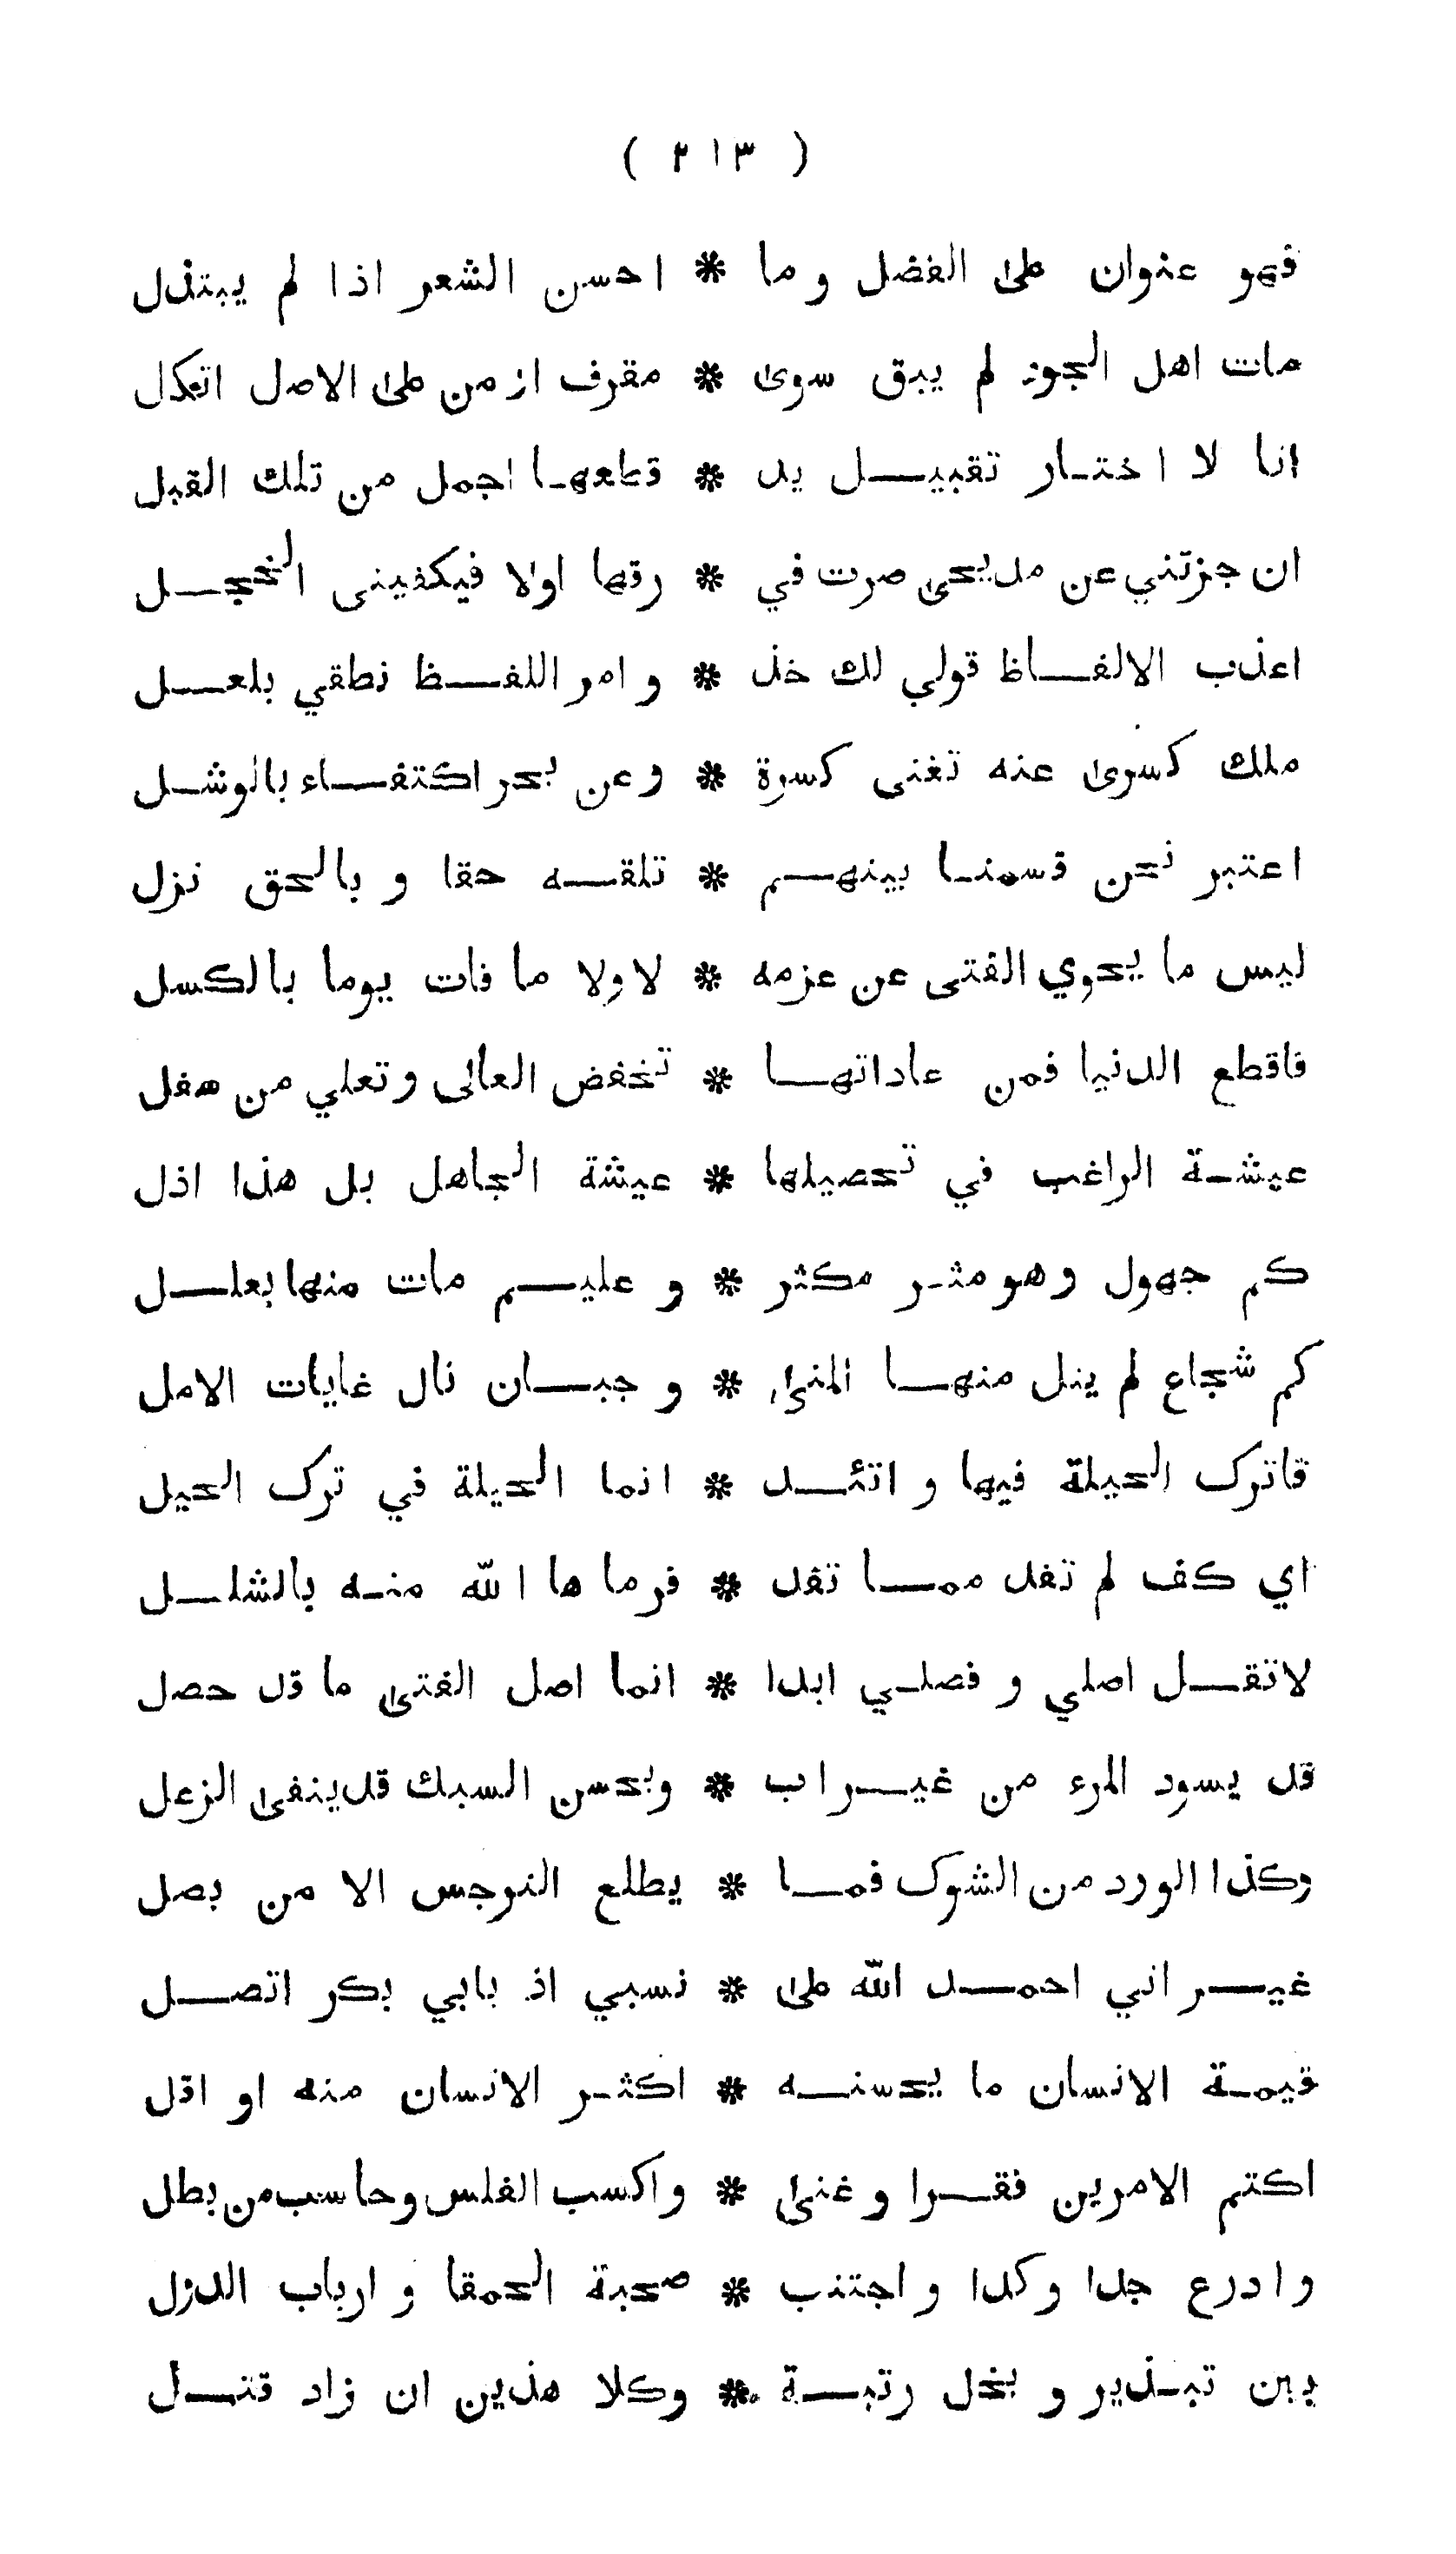 ( ٢١٣ )
فهو عنوان على الفضل وما * احسن الشعر اذا لم يبتذل
مات اهل الجود لم يبق سوى * مقرف او من على الاصل اتكل
انا لا اختار تقبيل يد * قطعها اجمل من تلك القبل
ان جزتني عن مديحى صرت في * رقها اولا فيكفينى الخجل
اعذب الالفاظ قولي لك خذ * وامر اللفظ نطقي بلعل
ملك كسرى عنه تغنى كسرة * وعن بحر اكتفاء بالوشل
اعتبر نحن قسمنا بينهم * تلقه حقا وبالحق نزل
ليس ما يحوي الفتى عن عزمه * لا ولا ما فات يوما بالكسل
فاقطع الدنيا فمن عاداتها * تخفض العالى وتعلي من سفل
عيشة الراغب في تحصيلها * عيشة الجاهل بل هذا اذل
كم جهول وهو مثر مكثر * و عليم مات منها بعلل
كم شجاع لم ينل منها المنى * و جبان نال غايات الامل
فاترك الحيلة فيها و اتئد * انما الحيلة في ترك الحيل
اي كف لم تفد مما تفد * فرماها الله منه بالشلل
لا تقل اصلي و فصلي ابدا * انما اصل الفتى ما قد حصل
قد يسود المرء من غير اب * وبحسن السبك قد ينفى الزعل
وكذا الورد من الشوك فما * يطلع النرجس الا من بصل
غير اني احمد الله على * نسبي اذ بابي بكر اتصل
قيمة الانسان ما يحسنه * اكثر الانسان منه او اقل
اكتم الامرين فقرا و غنى * واكسب الفلس وحاسب من بطل
وادرع جدا وكدا واجتنب * صحبة الحمقا و ارباب الدول
بين تبذير و بخل رتبة * وكلا هذين ان زاد قتل